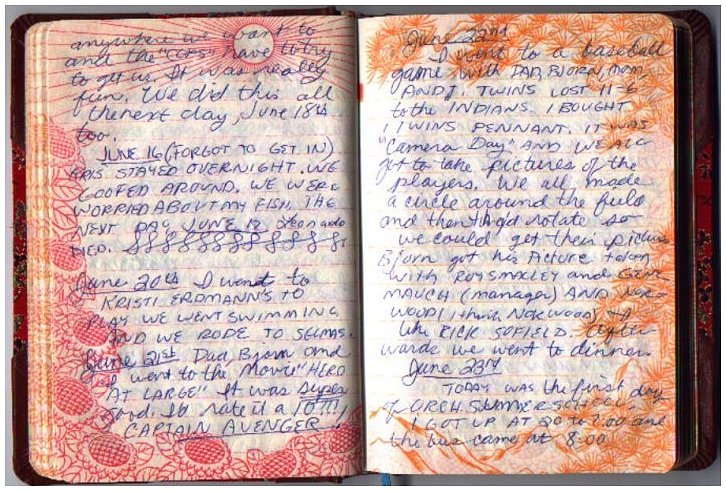 anywhere we want to
and the "COPS" have to try
to get us. It was really
fun. We did this all
the next day, June 18th
too.
JUNE 16 (FORGOT TO GET IN)
KRIS STAYED OVERNIGHT. WE
GOOFED AROUND. WE WERE
WORRIED ABOUT MY FISH. THE
NEXT DAY JUNE 17
DIED.
June 20th I went to
KRISTI ERDMANN'S TO
PLAY WE WENT SWIMMING
AND WE RODE TO SELMAS.
June 21st Dad Bjorn and
I went to the Movie "HERO
AT LARGE" It was super
good. I'd rate it a 10!!!!
CAPTAIN AVENGER
June 22nd
I went to a baseball
game with DAD, BJORN, MOM,
AND I. TWINS LOST 11-6
to the INDIANS. I BOUGHT
1 TWINS PENNANT. IT WAS
"Camera Day" AND WE ALL
got to take pictures of the
players. We all made
a circle around the field
and then had rotate so
we could get their picture
Bjorn got his Picture taken
WITH ROY SMALLEY and GENE
MAUCH (manager) AND
WOOD (I think Norwood)
like RICK SOFIELD. After
wards we went to dinner.
June 23rd
TODAY WAS the first day
of ORCH. SUMMER SCHOOL.
I GOT UP AT 20 to 7:00 and
the bus came at 8:00